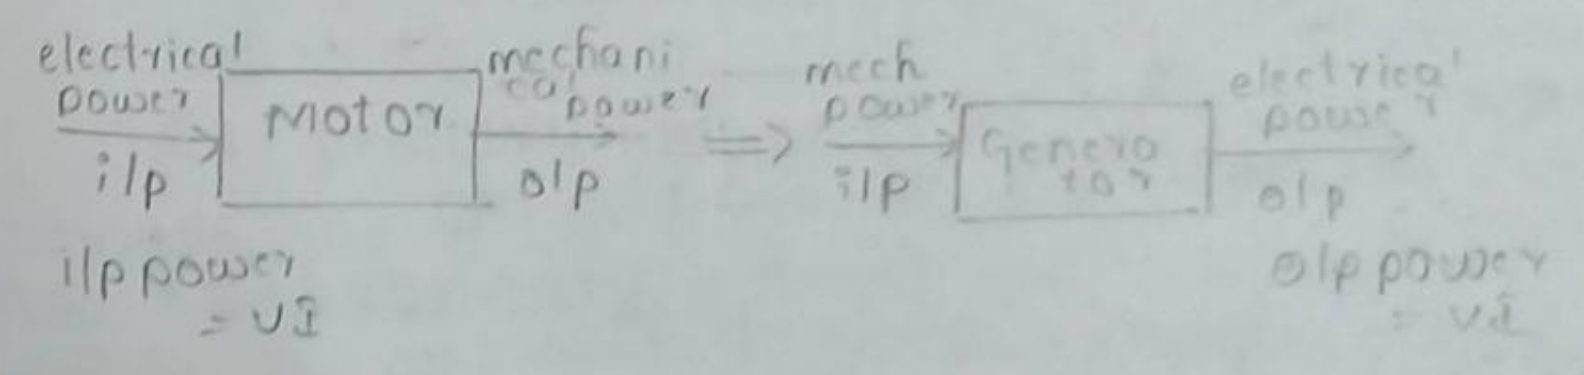 electrical
power
i/p
Motor
mechani
cal
power
o/p
⇒
mech
power
i/p
Genera
tor
electrical
power
o/p
i/p power
= VI
o/p power
= VI